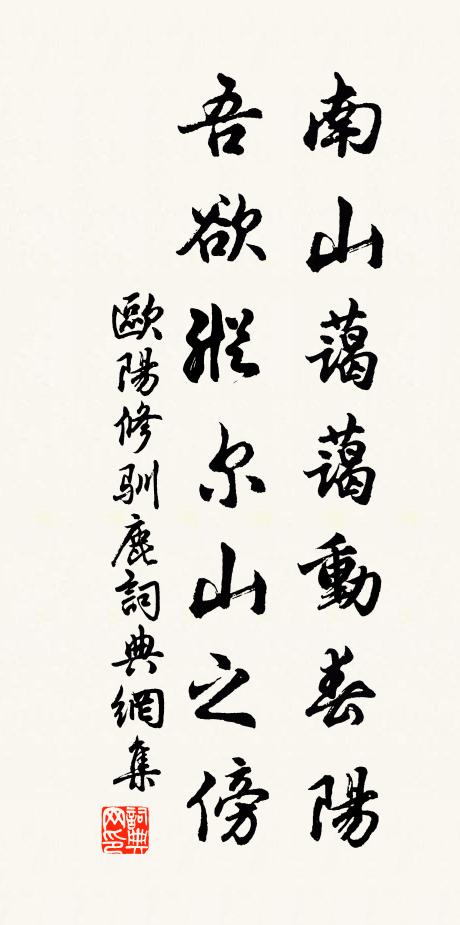 南山藹藹動春陽
吾欲縱尔山之傍
歐陽修馴鹿詞典網集
詞典
网印